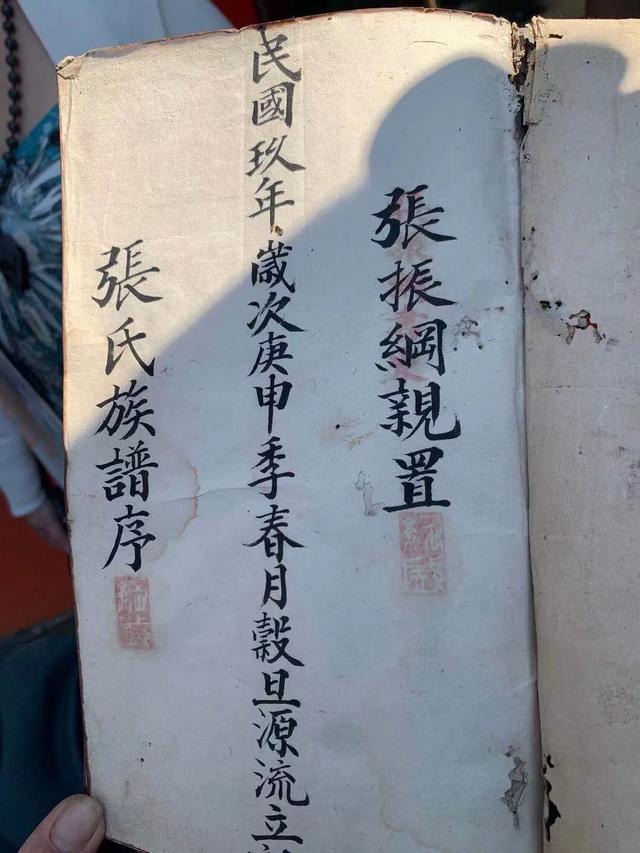 張振綱親置
民國玖年歲次庚申季春月穀旦源流立
張氏族譜序